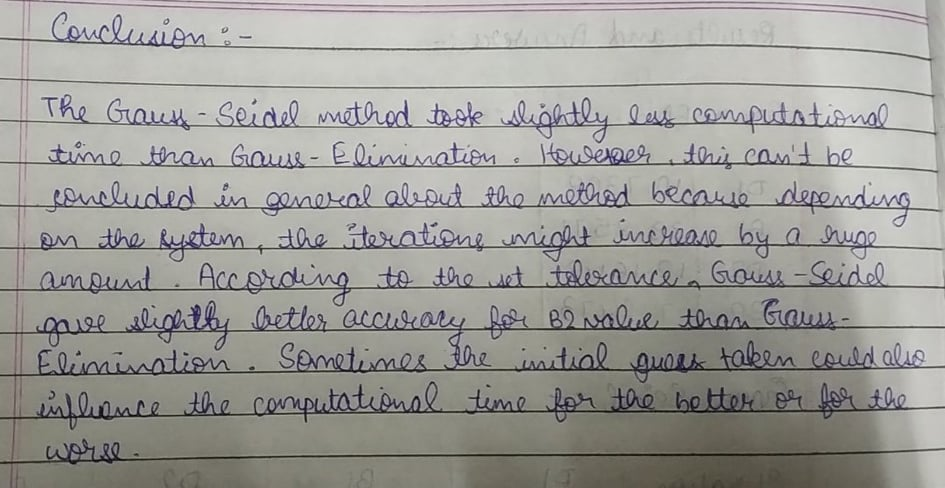 Conclusion :-
The Gauss - Seidel method took slightly less computational
time than Gauss - Elimination. However, this can't be
concluded in general about the method because depending
on the system, the iterations might increase by a huge
amount. According to the set tolerance, Gauss - Seidel
gave slightly better accuracy for B2 value than Gauss-
Elimination. Sometimes the initial guess taken could also
influence the computational time for the better or for the
worse.